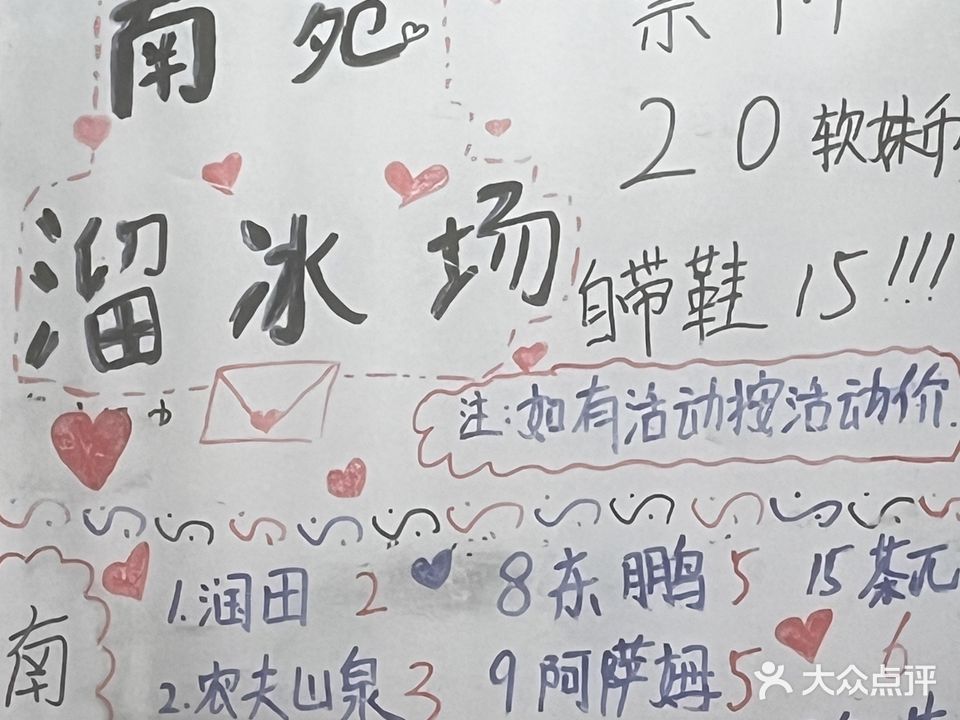 南苑
溜冰场
20软妹币
自带鞋 15!!!
注:如有活动按活动价.
1.润田 2
8东鹏 5
15茶兀
6
2.农夫山泉 3
9阿萨姆 5
南
大众点评